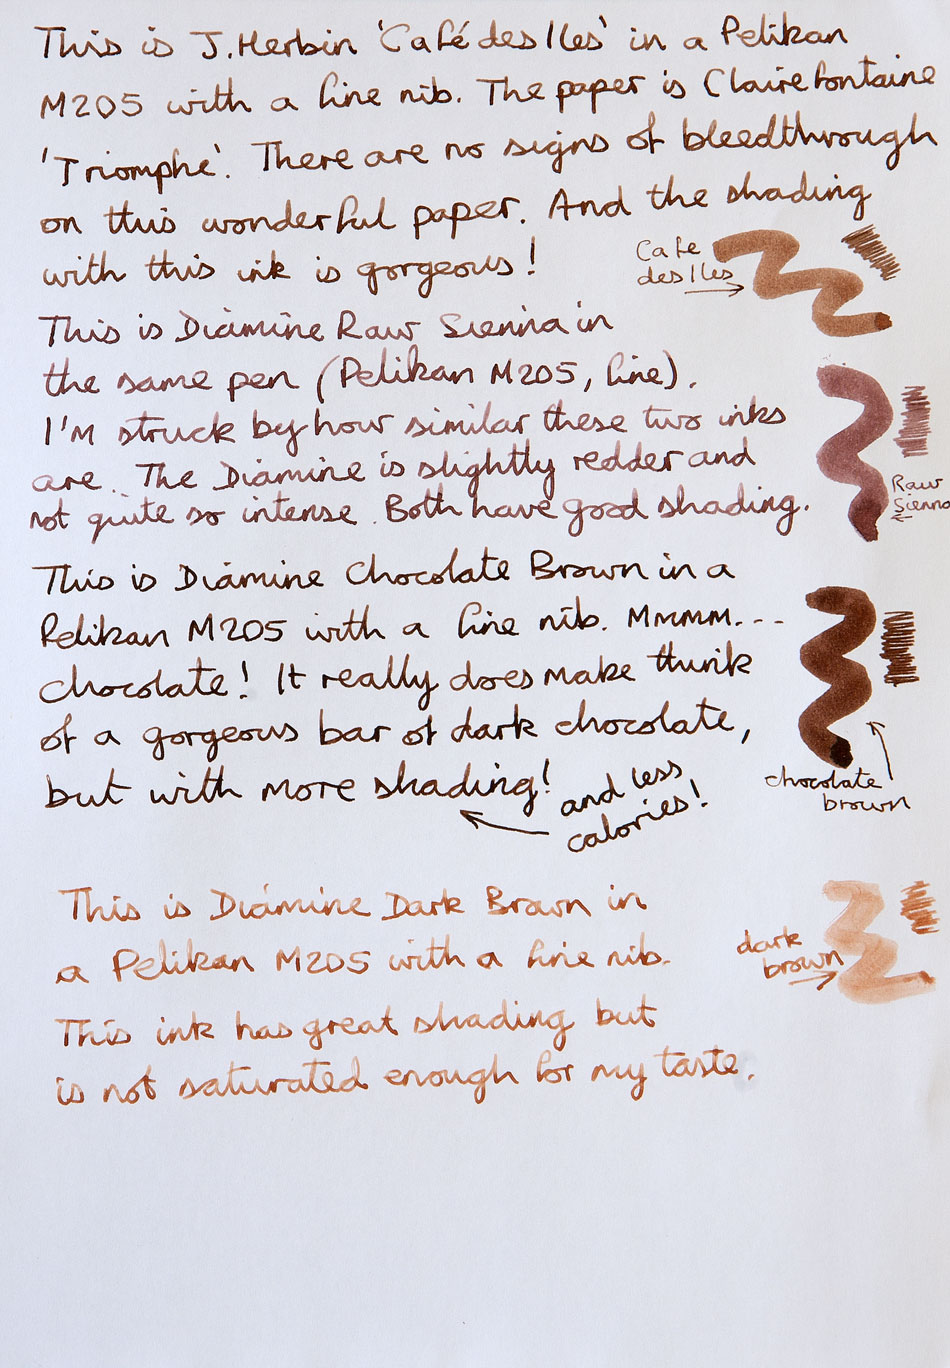 This is J.Herbin 'Café des Iles' in a Pelikan
M205 with a fine nib. The paper is Clairefontaine
'Triomphe'. There are no signs of bleedthrough
on this wonderful paper. And the shading
with this ink is gorgeous!
Cafe
des Iles
This is Diamine Raw Sienna in
the same pen (Pelikan M205, fine).
I'M struck by how similar these two inks
are. The Diamine is slightly redder and
not quite so intense. Both have good shading.
Raw
Sienna
This is Diamine Chocolate Brown in a
Pelikan M205 with a fine nib. Mmmmm...
chocolate! It really does make think
of a gorgeous bar of dark chocolate,
but with more shading!
and less
calories!
chocolate
brown
This is Diamine Dark Brown in
a Pelikan M205 with a fine nib.
This ink has great shading but
is not saturated enough for my taste.
dark
brown